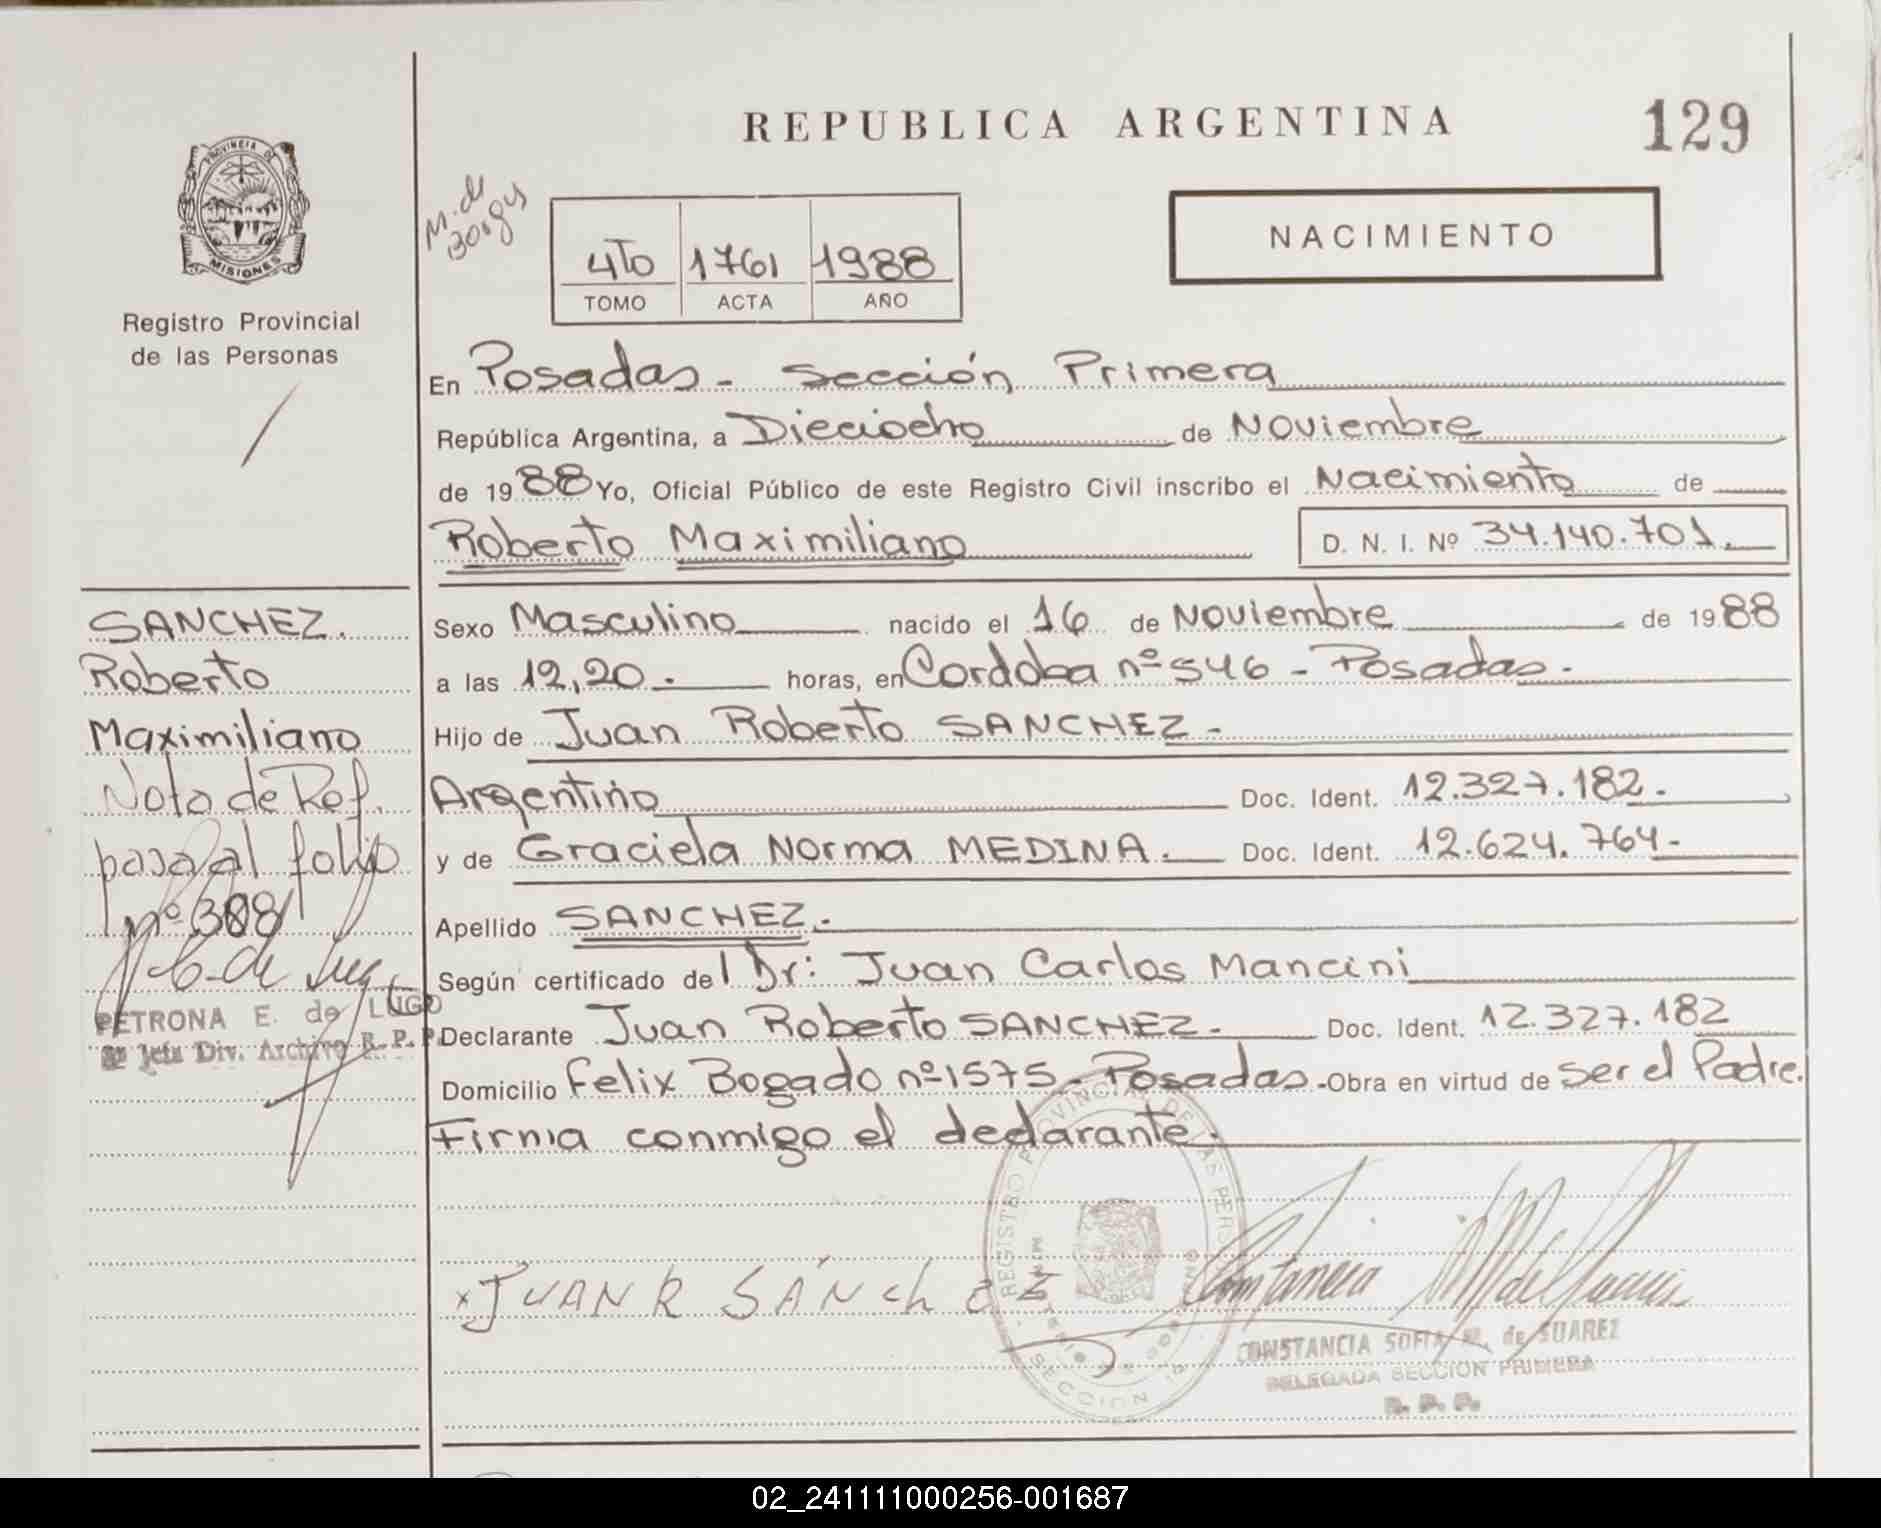 REPUBLICA ARGENTINA
129
PROVINCIA DE
MISIONES
Registro Provincial
de las Personas
M. de
Borges
4to 1761 1988
TOMO ACTA AÑO
NACIMIENTO
En Posadas - Sección Primera
República Argentina, a Dieciocho de Noviembre
de 1988 Yo, Oficial Público de este Registro Civil inscribo el Nacimiento de
Roberto Maximiliano D. N. I. Nº 34.140.701.
SANCHEZ.
Roberto
Maximiliano
Nota de Ref.
pasa al folio
nº 308
PETRONA E. de LUGO
Jefa Div. Archivo R. P. P.
Sexo Masculino nacido el 16 de Noviembre de 1988
a las 12,20.- horas, en Cordoba nº 546 - Posadas.
Hijo de Juan Roberto SANCHEZ.-
Argentino Doc. Ident. 12.327.182.-
y de Graciela Norma MEDINA.- Doc. Ident. 12.624.764-
Apellido SANCHEZ.-
Según certificado del Dr: Juan Carlos Mancini
Declarante Juan Roberto SANCHEZ.- Doc. Ident. 12.327.182
Domicilio Felix Bogado nº 1575 - Posadas.-Obra en virtud de ser el Padre.
Firma conmigo el declarante.
REGISTRO PROVINCIAL DE LAS PERS
SECCION 1a
x JUAN R SÁNchEz
CONSTANCIA SOFIA M. de SUAREZ
DELEGADA SECCION PRIMERA
R. P. P.
02_241111000256-001687